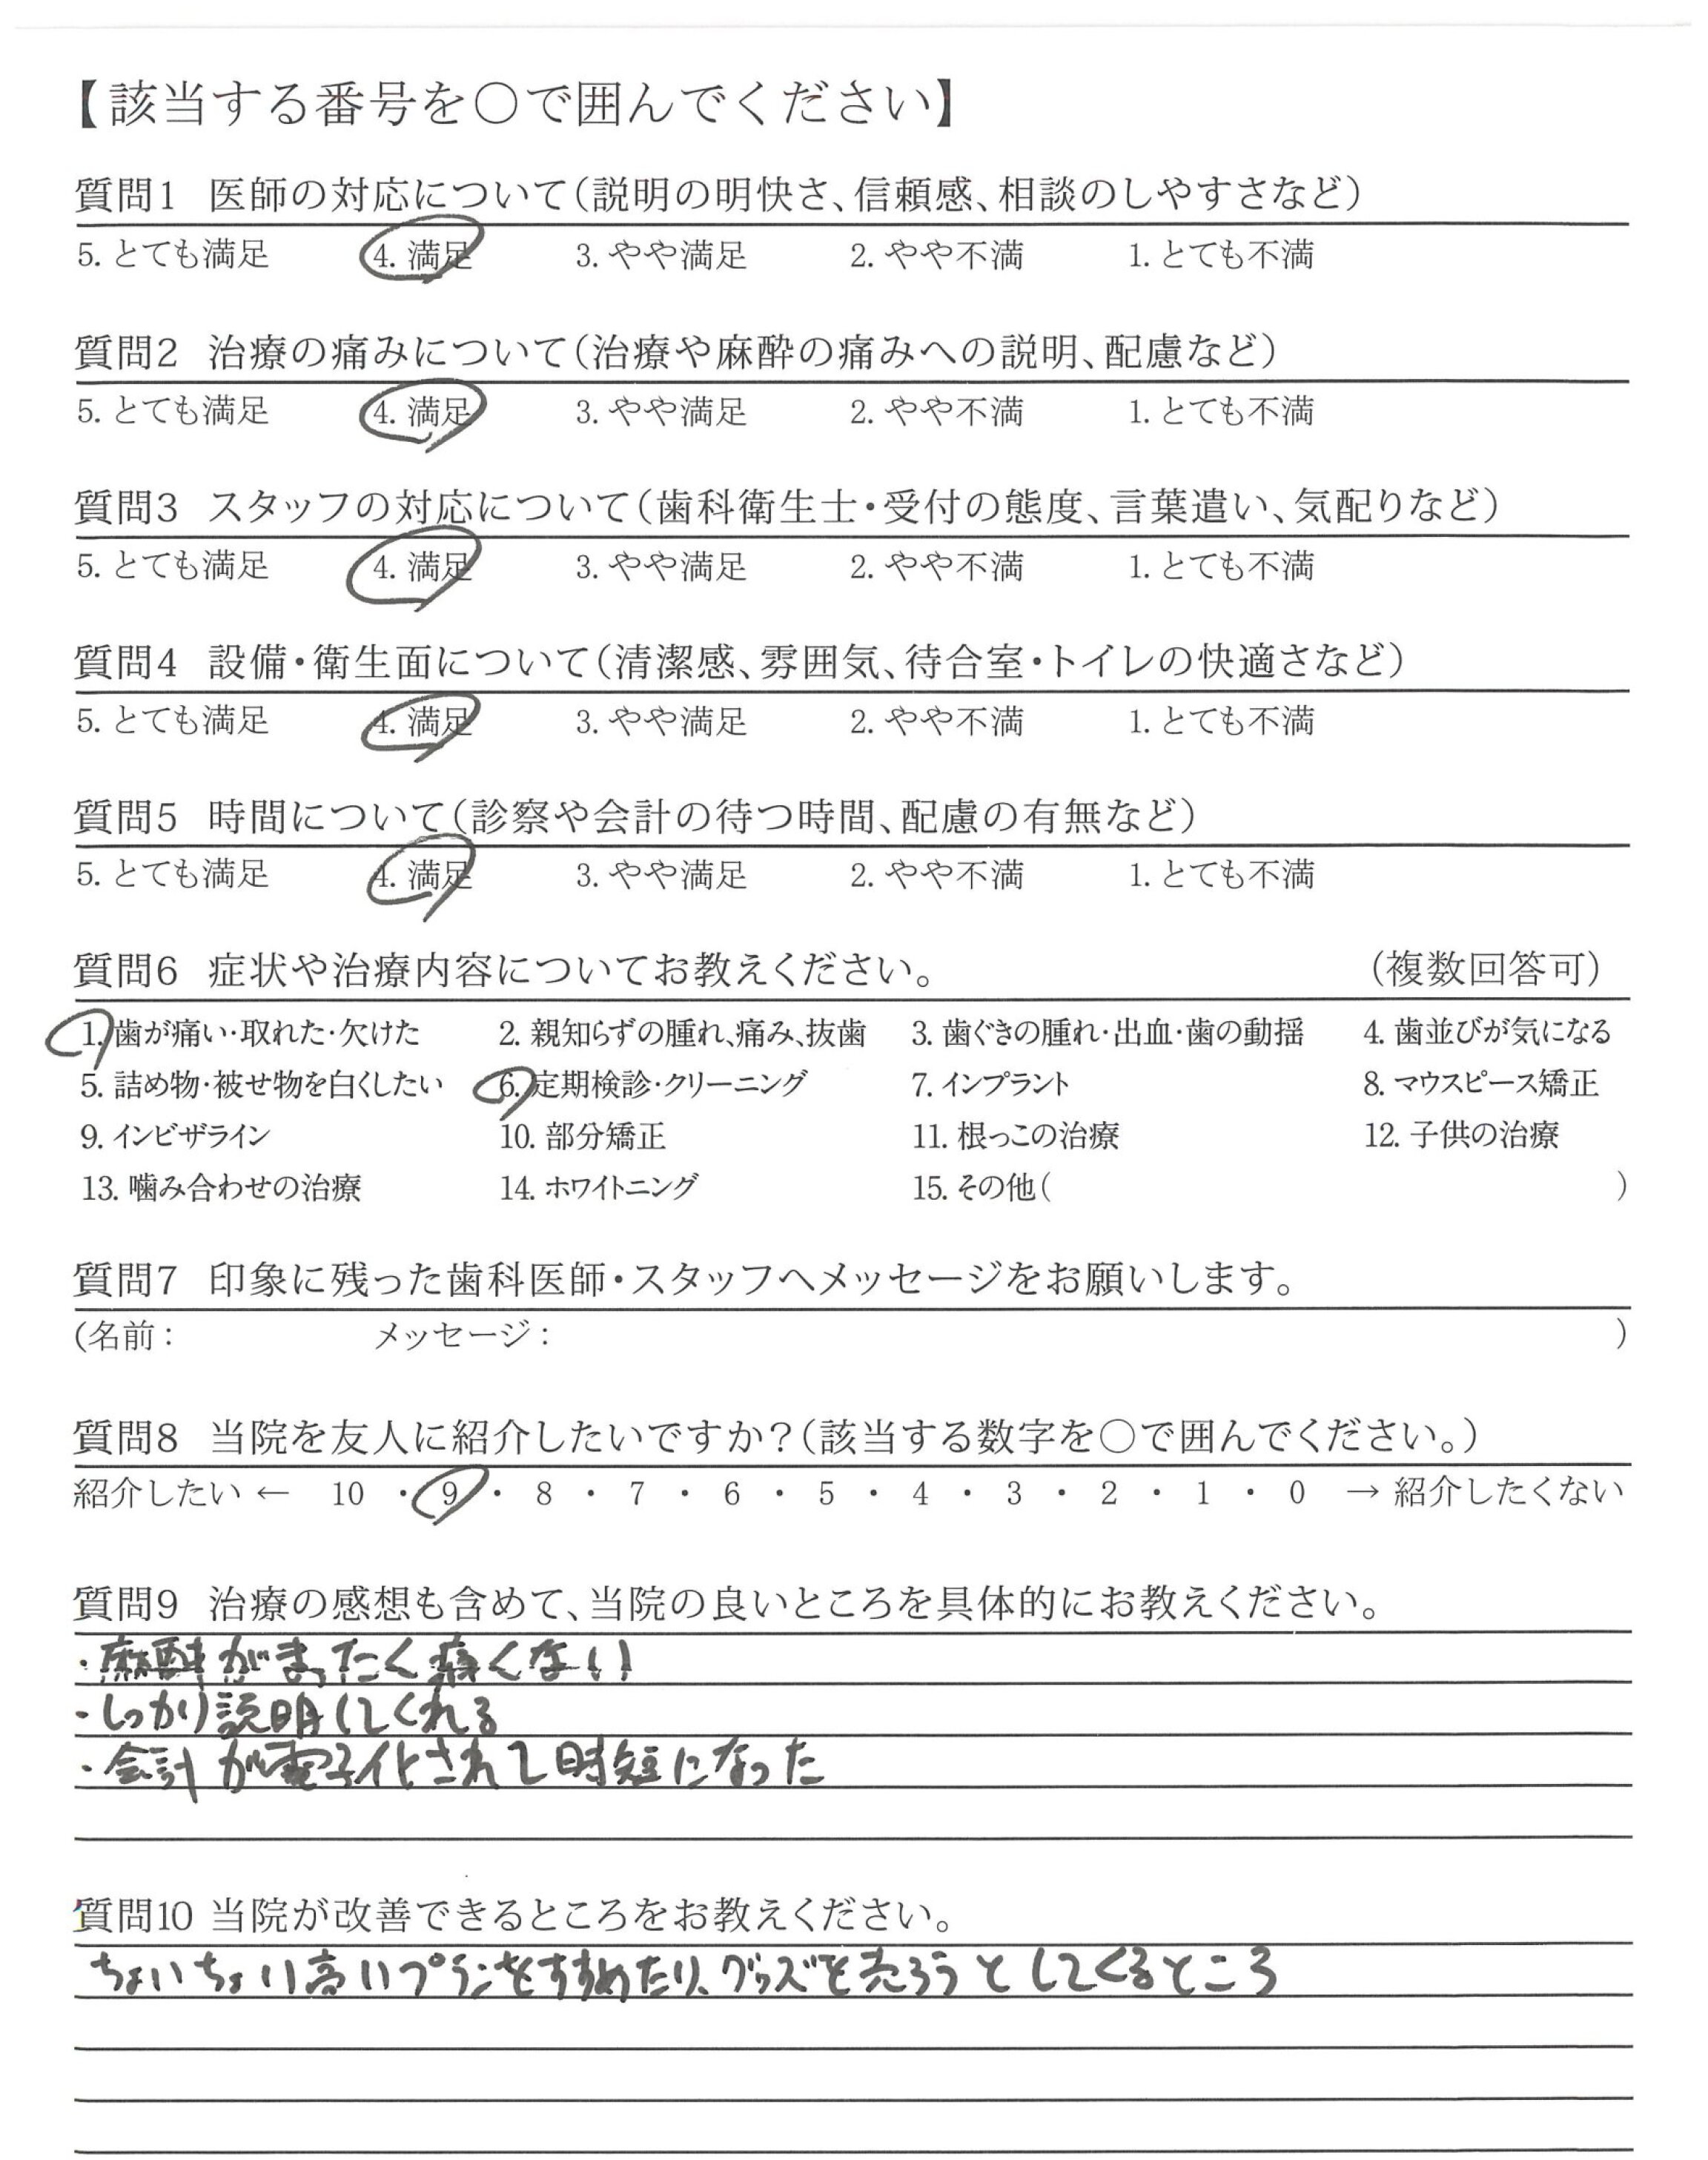 【該当する番号を○で囲んでください】
質問1 医師の対応について(説明の明快さ、信頼感、相談のしやすさなど)
5. とても満足 4. 満足 3. やや満足 2. やや不満 1. とても不満
質問2 治療の痛みについて(治療や麻酔の痛みへの説明、配慮など)
5. とても満足 4. 満足 3. やや満足 2. やや不満 1. とても不満
質問3 スタッフの対応について(歯科衛生士・受付の態度、言葉遣い、気配りなど)
5. とても満足 4. 満足 3. やや満足 2. やや不満 1. とても不満
質問4 設備・衛生面について(清潔感、雰囲気、待合室・トイレの快適さなど)
5. とても満足 4. 満足 3. やや満足 2. やや不満 1. とても不満
質問5 時間について(診察や会計の待つ時間、配慮の有無など)
5. とても満足 4. 満足 3. やや満足 2. やや不満 1. とても不満
質問6 症状や治療内容についてお教えください。 (複数回答可)
1. 歯が痛い・取れた・欠けた 2. 親知らずの腫れ、痛み、抜歯 3. 歯ぐきの腫れ・出血・歯の動揺 4. 歯並びが気になる
5. 詰め物・被せ物を白くしたい 6. 定期検診・クリーニング 7. インプラント 8. マウスピース矯正
9. インビザライン 10. 部分矯正 11. 根っこの治療 12. 子供の治療
13. 噛み合わせの治療 14. ホワイトニング 15. その他( )
質問7 印象に残った歯科医師・スタッフへメッセージをお願いします。
(名前: メッセージ: )
質問8 当院を友人に紹介したいですか?(該当する数字を○で囲んでください。)
紹介したい ← 10 ・ 9 ・ 8 ・ 7 ・ 6 ・ 5 ・ 4 ・ 3 ・ 2 ・ 1 ・ 0 → 紹介したくない
質問9 治療の感想も含めて、当院の良いところを具体的にお教えください。
・麻酔がまったく痛くない
・しっかり説明してくれる
・会計が電子化されて時短になった
質問10 当院が改善できるところをお教えください。
ちょいちょい高いプランをすすめたり、グッズを売ろうとしてくるところ